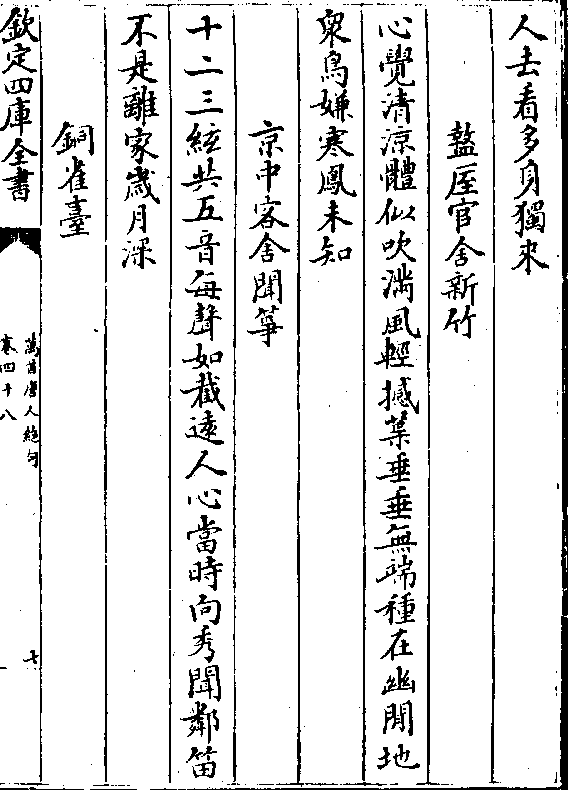 人去看多身獨來
盩厔官舍新竹
心覺清涼體似吹滿風輕撼葉垂垂無端種在幽閒地
衆鳥嫌寒鳳未知
京中客舍聞箏
十二三絃共五音每聲如截遠人心當時向秀聞鄰笛
不是離家歲月深
銅雀臺
欽定四庫全書
萬首唐人絶句
卷四十八
七